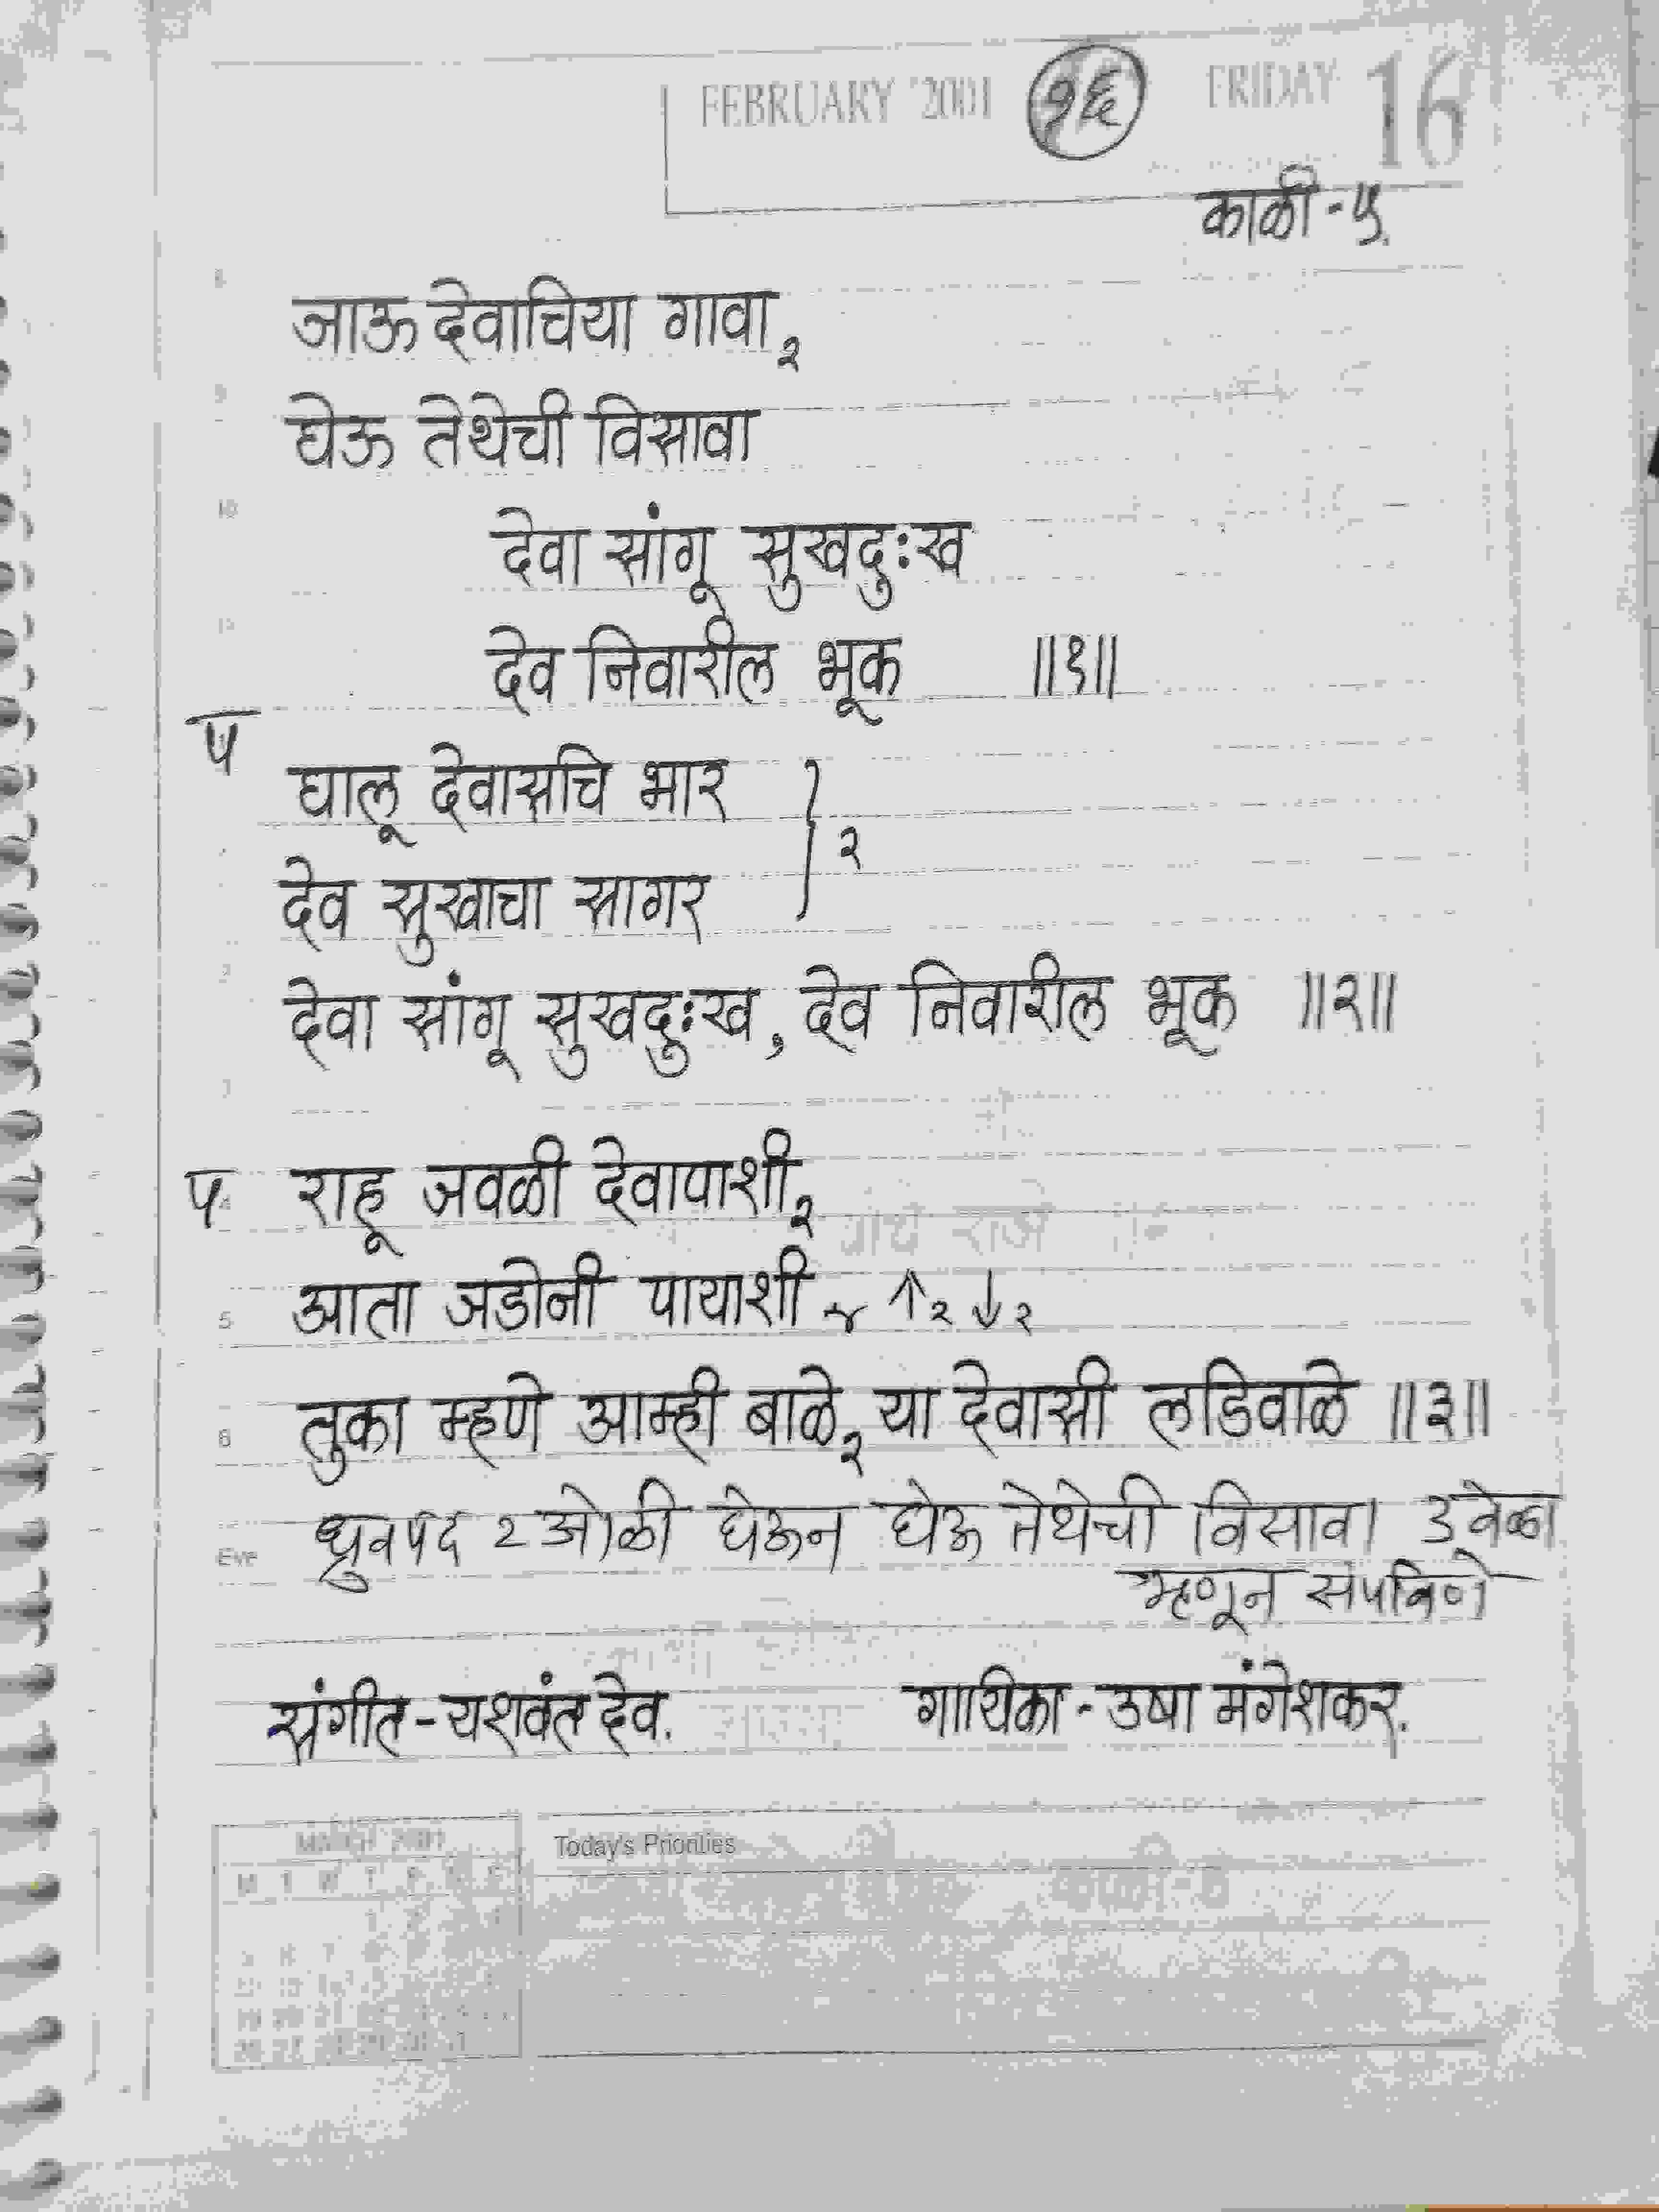 FEBRUARY '2001 १६ FRIDAY 16
काळी - ५.
जाऊ देवाचिया गावा २
घेऊ तेथेची विसावा
देवा सांगू सुखदुःख
देव निवारील भूक ॥१॥
प
घालू देवासचि भार
२
देव सुखाचा सागर
देवा सांगू सुखदुःख, देव निवारील भूक ॥२॥
प राहू जवळी देवापाशी २
आता जडोनी पायाशी ४ ↑२ ↓२
तुका म्हणे आम्ही बाळे २ या देवासी लडिवाळे ॥३॥
ध्रुवपद २ ओळी घेऊन घेऊ तेथेची विसावा ३ वेळा
म्हणून संपविणे
संगीत - यशवंत देव. गायिका - उषा मंगेशकर.
Today's Priorities